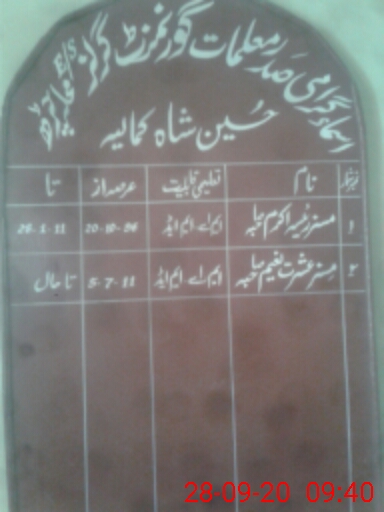 اسماء گرامی صدر معلمات گورنمنٹ گرلز E/S
حسین شاہ کمالیہ
نمبر شمار نام تعلیمی قابلیت عرصہ از تا
۱ مسز رئیسہ اکرم صاحبہ ایم اے ایم ایڈ 20-10-04 26-1-11
۲ مسز عشرت نعیم صاحبہ ایم اے ایم ایڈ 5-7-11 تا حال
28-09-20 09:40